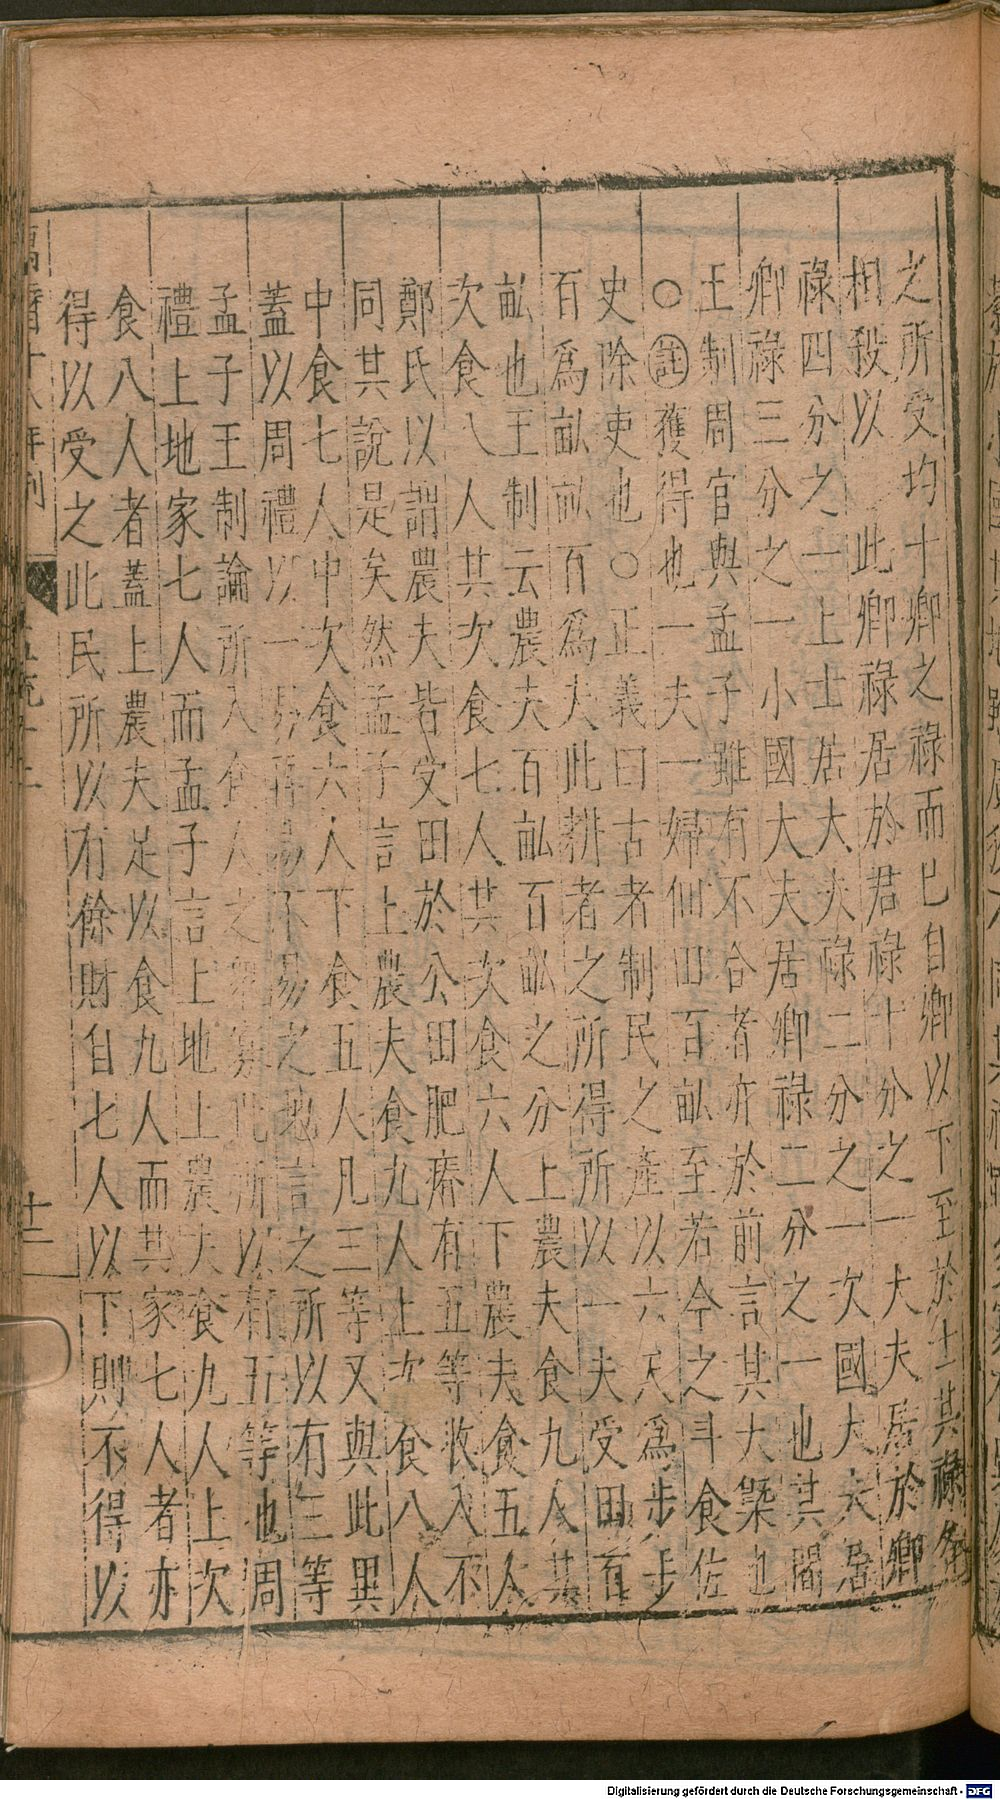 之所受均十卿之祿而已自卿以下至於士其祿各
相殺以　此卿祿居於君祿十分之一大夫居於卿
祿四分之一上士居大夫祿二分之一次國大夫居
卿祿三分之一小國大夫居卿祿二分之一也其間
王制周官與孟子雖有不合者亦於前言其大槩也
○註獲得也一夫一婦佃田百畝至若今之斗食佐
史除吏也○正義曰古者制民之產以六尺為步步
百爲畝畝百爲夫此耕者之所得所以一夫受田百
畝也王制云農夫百畝百畝之分上農夫食九人其
次食八人其次食七人其次食六人下農夫食五人
鄭氏以謂農夫皆受田於公田肥瘠有五等收入不
同其說是矣然孟子言上農夫食九人上次食八人
中食七人中次食六人下食五人凡三等又與此異
蓋以周禮以一易再易不易之地言之所以有三等
孟子王制論所入食人之眾寡此所以有五等也周
禮上地家七人而孟子言上地上農夫食九人上次
食八人者蓋上農夫足以食九人而其家七人者亦
得以受之此民所以有餘財自七人以下則不得以
十二
Digitalisierung gefördert durch die Deutsche Forschungsgemeinschaft - DFG